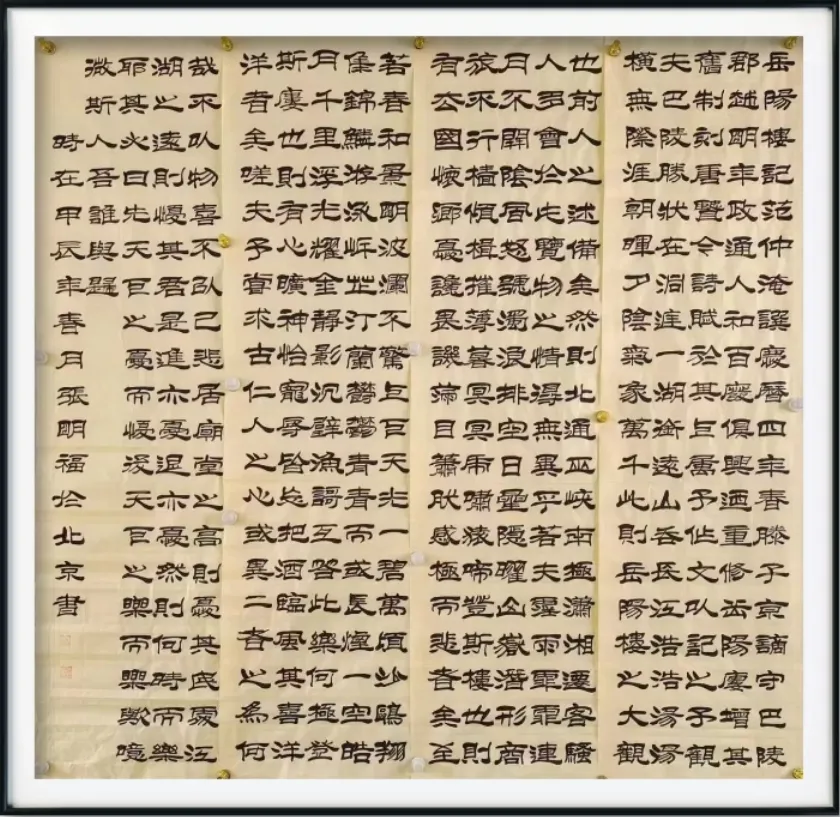 岳陽樓記范仲淹譔慶曆四年春滕子京謫守巴陵
郡越明年政通人和百廢俱興迺重修岳陽廔增其
舊制刻唐賢今詩賦於其上屬予作文以記之予觀
夫巴陵勝狀在洞庭一湖銜遠山吞長江浩浩湯湯
橫無際涯朝暉夕陰氣象萬千此則岳陽樓之大觀
也前人之述備矣然則北通巫峽南極瀟湘遷客騷
人多會於此覽物之情得無異乎若夫霪雨霏霏連
月不開陰風怒號濁浪排空日星隱曜山嶽潛形商
旅不行檣傾楫摧薄暮冥冥虎嘯猿啼登斯樓也則
有去國懷鄉憂讒畏譏滿目蕭然感極而悲者矣至
若春和景明波瀾不驚上下天光一碧萬頃沙鷗翔
集錦鱗游泳岸芷汀蘭鬱鬱青青而或長煙一空皓
月千里浮光耀金靜影沉璧漁歌互答此樂何極登
斯廔也則有心曠神怡寵辱皆忘把酒臨風其喜洋
洋者矣嗟夫予嘗求古仁人之心或異二者之為何
哉不以物喜不以己悲居廟堂之高則憂其民處江
湖之遠則憂其君是進亦憂退亦憂然則何時而樂
耶其必曰先天下之憂而憂後天下之樂而樂歟噫
微斯人吾誰與歸
時在甲辰年春月張明福於北京書